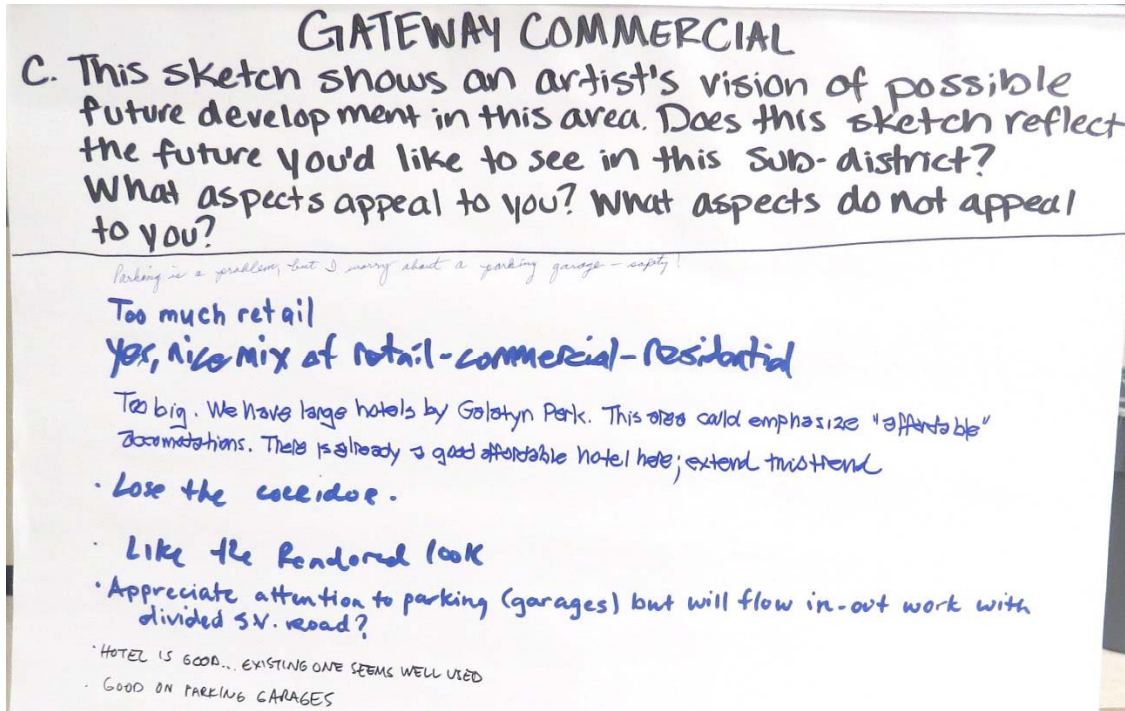 GATEWAY COMMERCIAL
C. This sketch shows an artist's vision of possible
future development in this area. Does this sketch reflect
the future you'd like to see in this Sub-district?
What aspects appeal to you? What aspects do not appeal
to you?
Parking is a problem, but I worry about a parking garage - safety!
Too much retail
Yes, nice mix of retail-commercial-residential
Too big. We have large hotels by Galatyn Park. This area could emphasize "affordable"
accomodations. There is already a good affordable hotel here; extend this trend
· Lose the corridor.
· Like the Rendered look
· Appreciate attention to parking (garages) but will flow in-out work with
divided S.V. road?
· HOTEL IS GOOD... EXISTING ONE SEEMS WELL USED
· GOOD ON PARKING GARAGES